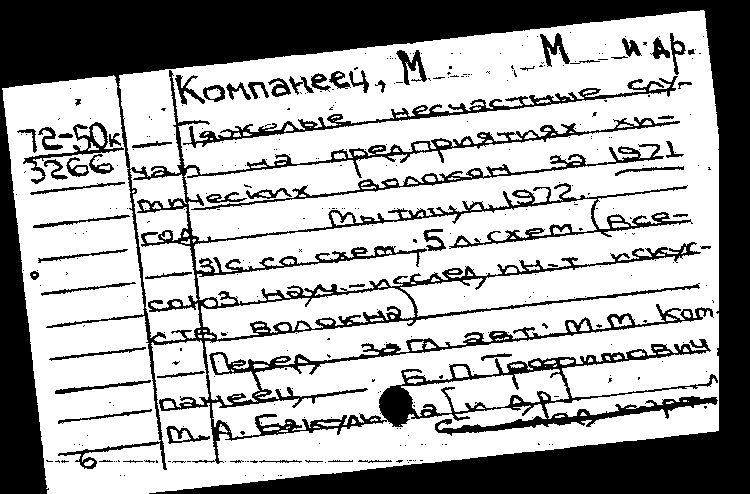 Компанеец, М М и др.
72-50к
3266
Тяжелые несчастные слу-
чаи на предприятиях хи-
мических волокон за 1971
год. Мытищи, 1972.
31с. со схем.; 5 л. схем. (Все-
союз. науч.-исслед. ин-т искус-
ств. волокна)
Перед. загл. авт.: М.М. Ком-
панеец, Б.П. Трофимович
М.А. Бакульина [и др.]
См след. карт.
6